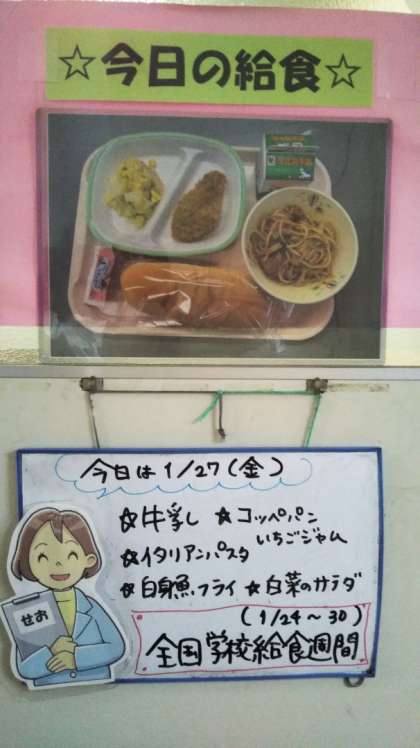 ☆今日の給食☆
今日は1/27(金)
☆牛乳 ☆コッペパン
いちごジャム
☆イタリアンパスタ
☆白身魚フライ ☆白菜のサラダ
(1/24～30)
全国学校給食週間
せお